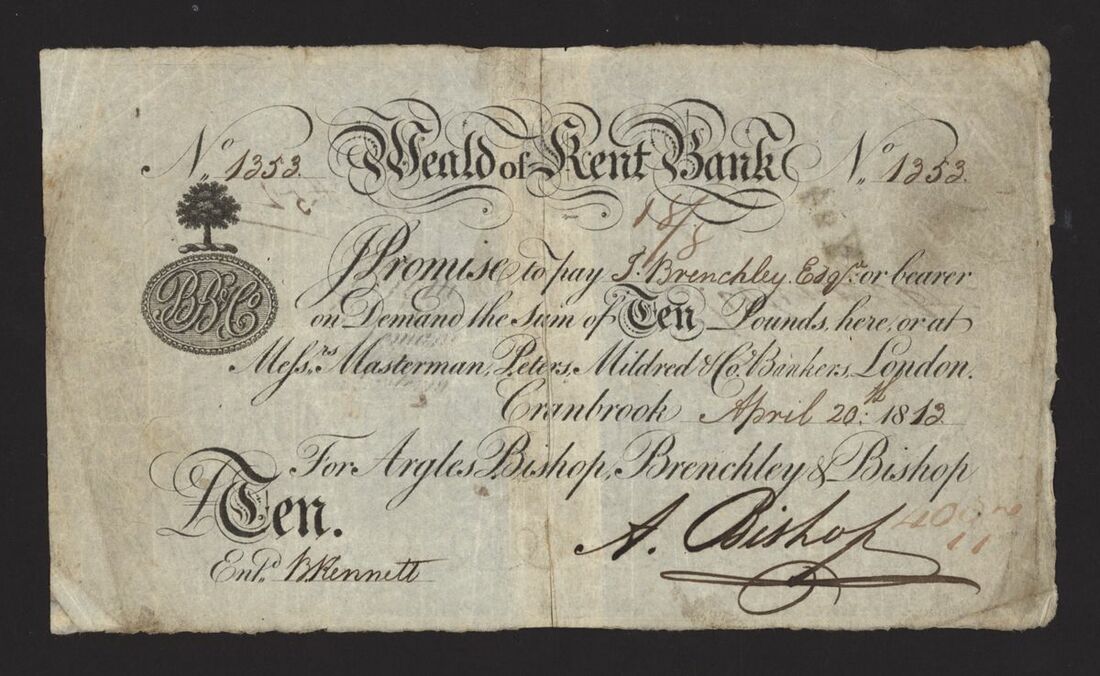 No. 1353. Weald of Kent Bank No. 1353.
18/8
BB&Co
I Promise to pay J. Brenchley Esqr. or bearer
on Demand the Sum of Ten Pounds, here, or at
Messrs. Masterman, Peters, Mildred & Co. Bankers, London.
Cranbrook April 20th: 1813
For Argles, Bishop, Brenchley & Bishop
£Ten.
A. Bishop
Entd. B Kennett